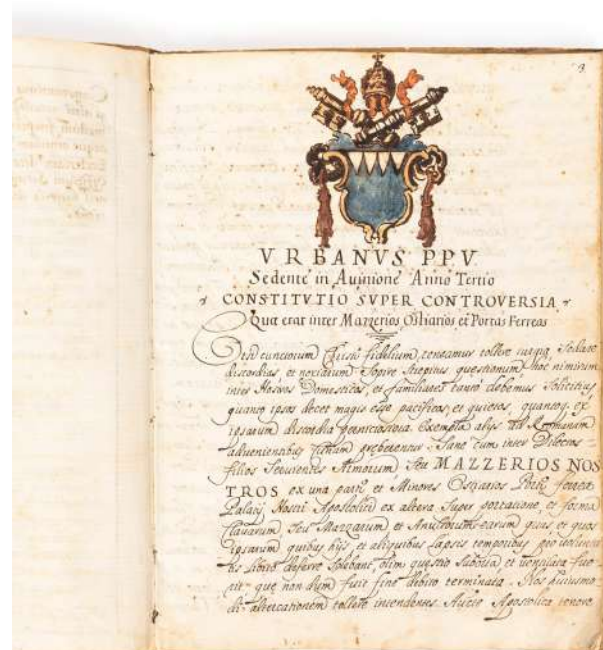 3
VRBANVS PPV
Sedente in Auinione Anno Tertio
CONSTITVTIO SVPER CONTROVERSIA
Quæ erat inter Mazzerios Ostiarios et Portas Ferreas
cunctorum Christi fidelium, teneamur tollere iurgia, Sedare
discordias, et noxiarum Sopire strepitus questionum, hoc nimirum
inter Nostros Domesticos, et familiares tanto debemus Solicitius
quanto ipsos decet magis esse pacificos, et quietos, quantoq. ex
ipsorum discordia perniciosiora Exempla alijs ad Romanam
aduenientibus Curiam preberentur. Sane cum inter Dilectos
filios Seruientes Armorum Seu MAZZERIOS NOS
TROS ex una parte et Minores Ostiarios Portæ ferreæ
Palatij Nostri Apostolici ex altera Super portatione, et forma
Clauarum, Seu Mazzarum et earum quas et quos
ipsarum quibus hijs, et aliquibus lapsis temporibus pro
libito deferre Solebant, olim questio Suborta, et uentilata fue
rit, que non dum fuit fine debito terminata. Nos huiusmo
di altercationem tollere intendentes. Aucte Apostolica tenore